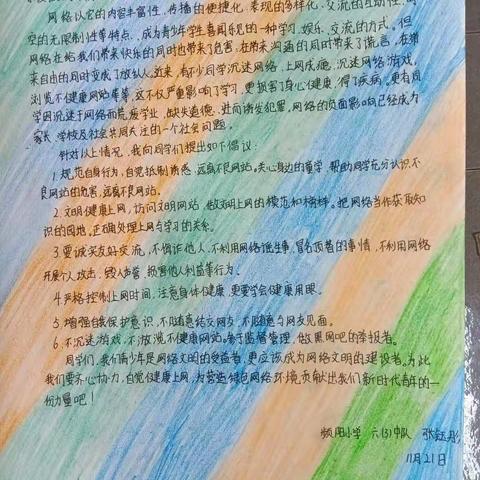 网络以它的内容丰富性、传播的便捷化、表现的多样化、交流的互动性、时
空的无限制性等特点,成为青少年学生喜闻乐见的一种学习、娱乐、交流的方式。但
网络在给我们带来快乐的同时也带来了危害,在带来沟通的同时带来了谎言,在带
来自由的同时变成了放纵。近来,有不少同学沉迷网络,上网成瘾,沉迷网络游戏,
浏览不健康网站等等,这不仅严重影响了学习,更损害了身心健康,得了疾病。更有同
学因沉迷于网络而荒废学业,缺失道德,进而诱发犯罪,网络的负面影响已经成为
家长、学校及社会共同关注的一个社会问题。
针对以上情况,我向同学们提出如下倡议:
1.规范自身行为,自觉抵制诱惑,远离不良网站。关心身边的同学,帮助同学充分认识不
良网站的危害,远离不良网站。
2.文明健康上网,访问文明网站,做文明上网的模范和榜样。把网络当作获取知
识的园地,正确处理上网与学习的关系。
3.要诚实友好交流,不侮诈他人,不利用网络滋生事,冒名顶替的事情,不利用网络
开展个人攻击、毁人声誉、损害他人利益等行为。
4.严格控制上网时间,注意身体健康,更要学会健康用眼。
5.增强自我保护意识,不随意结交网友,不随意与网友见面。
6.不沉迷游戏,不浏览不健康网站。参与监督管理,做黑网吧的举报者。
同学们,我们青少年是网络文明的受益者,更应该成为网络文明的建设者。为此
我们要齐心协力,自觉健康上网,为营造绿色网络环境贡献出我们新时代青年的一
份力量吧!
频阳小学 六(3)中队 张钰彤
11月21日